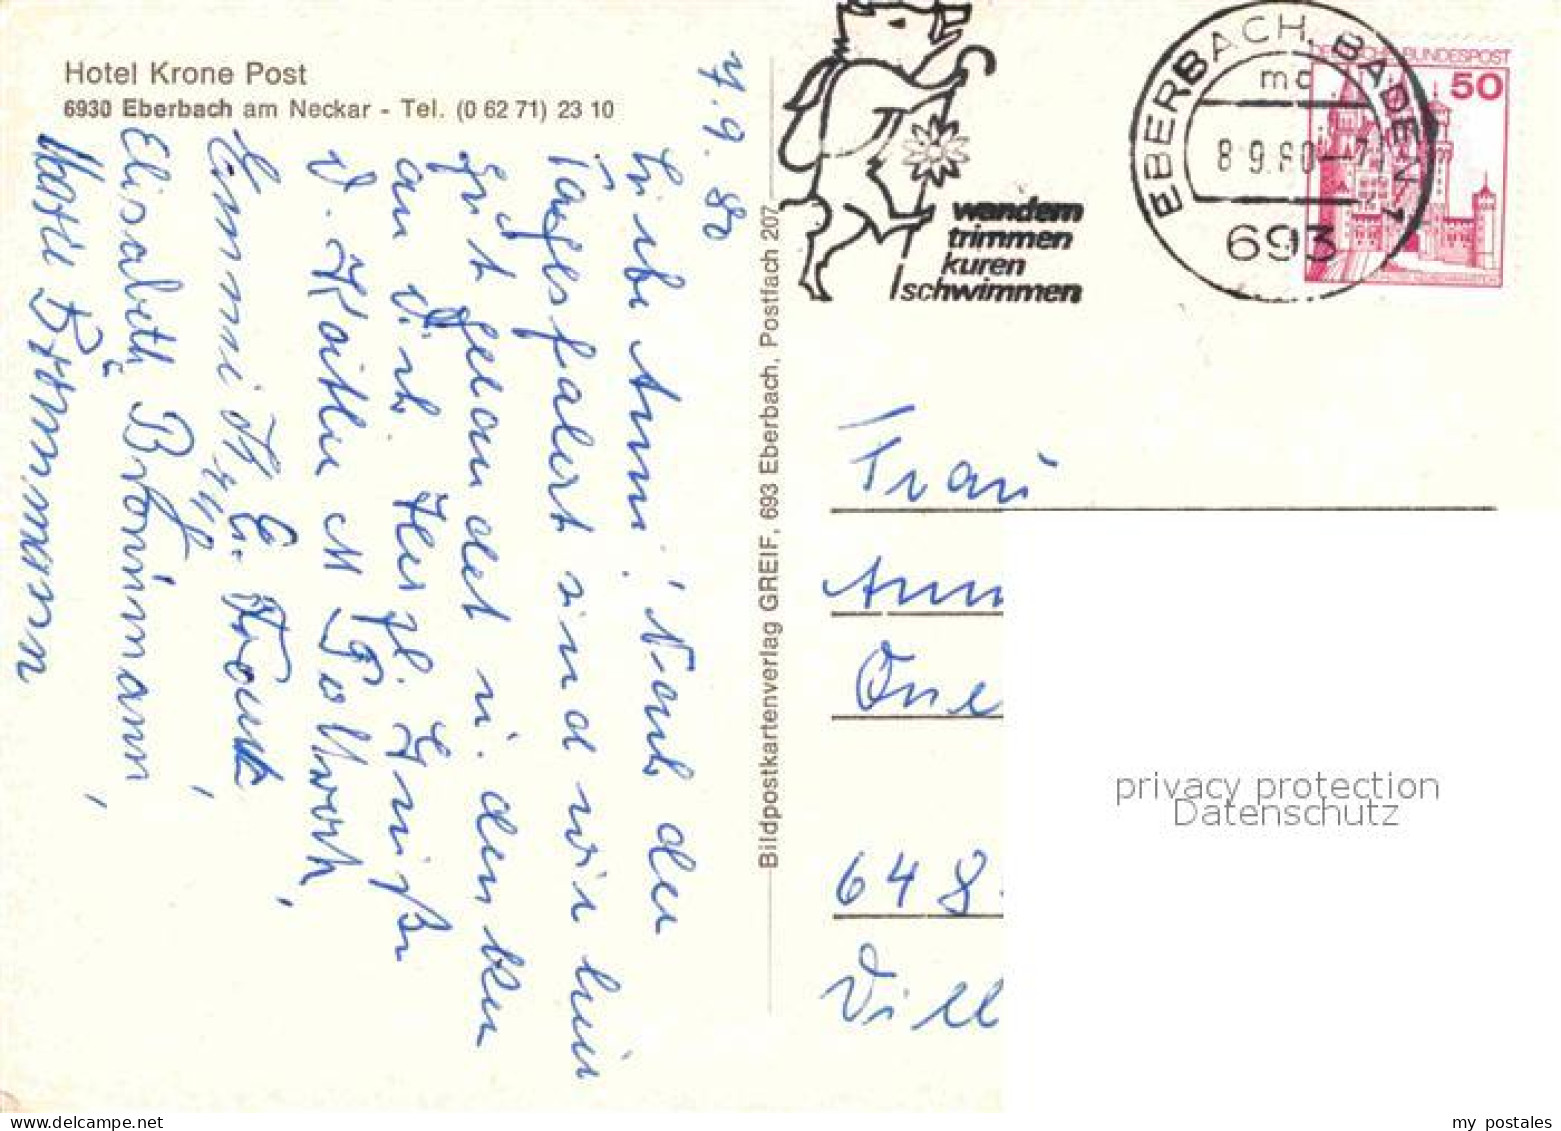 Hotel Krone Post
6930 Eberbach am Neckar - Tel. (0 62 71) 23 10
7.9.80
Liebe Anni! Nach der
Tagesfahrt sind wir hier
gut gelandet u. denken
an Dich. Herzl. Grüße
D. Käthe M
Emmi
Elisabeth Brönimann,
Bildpostkartenverlag GREIF, 693 Eberbach, Postfach 207
wandern
trimmen
kuren
schwimmen
EBERBACH, BADEN 1
mc
8.9.80-7
693
DEUTSCHE BUNDESPOST
50
Frau
Ann
648
Dill
privacy protection
Datenschutz
my postales